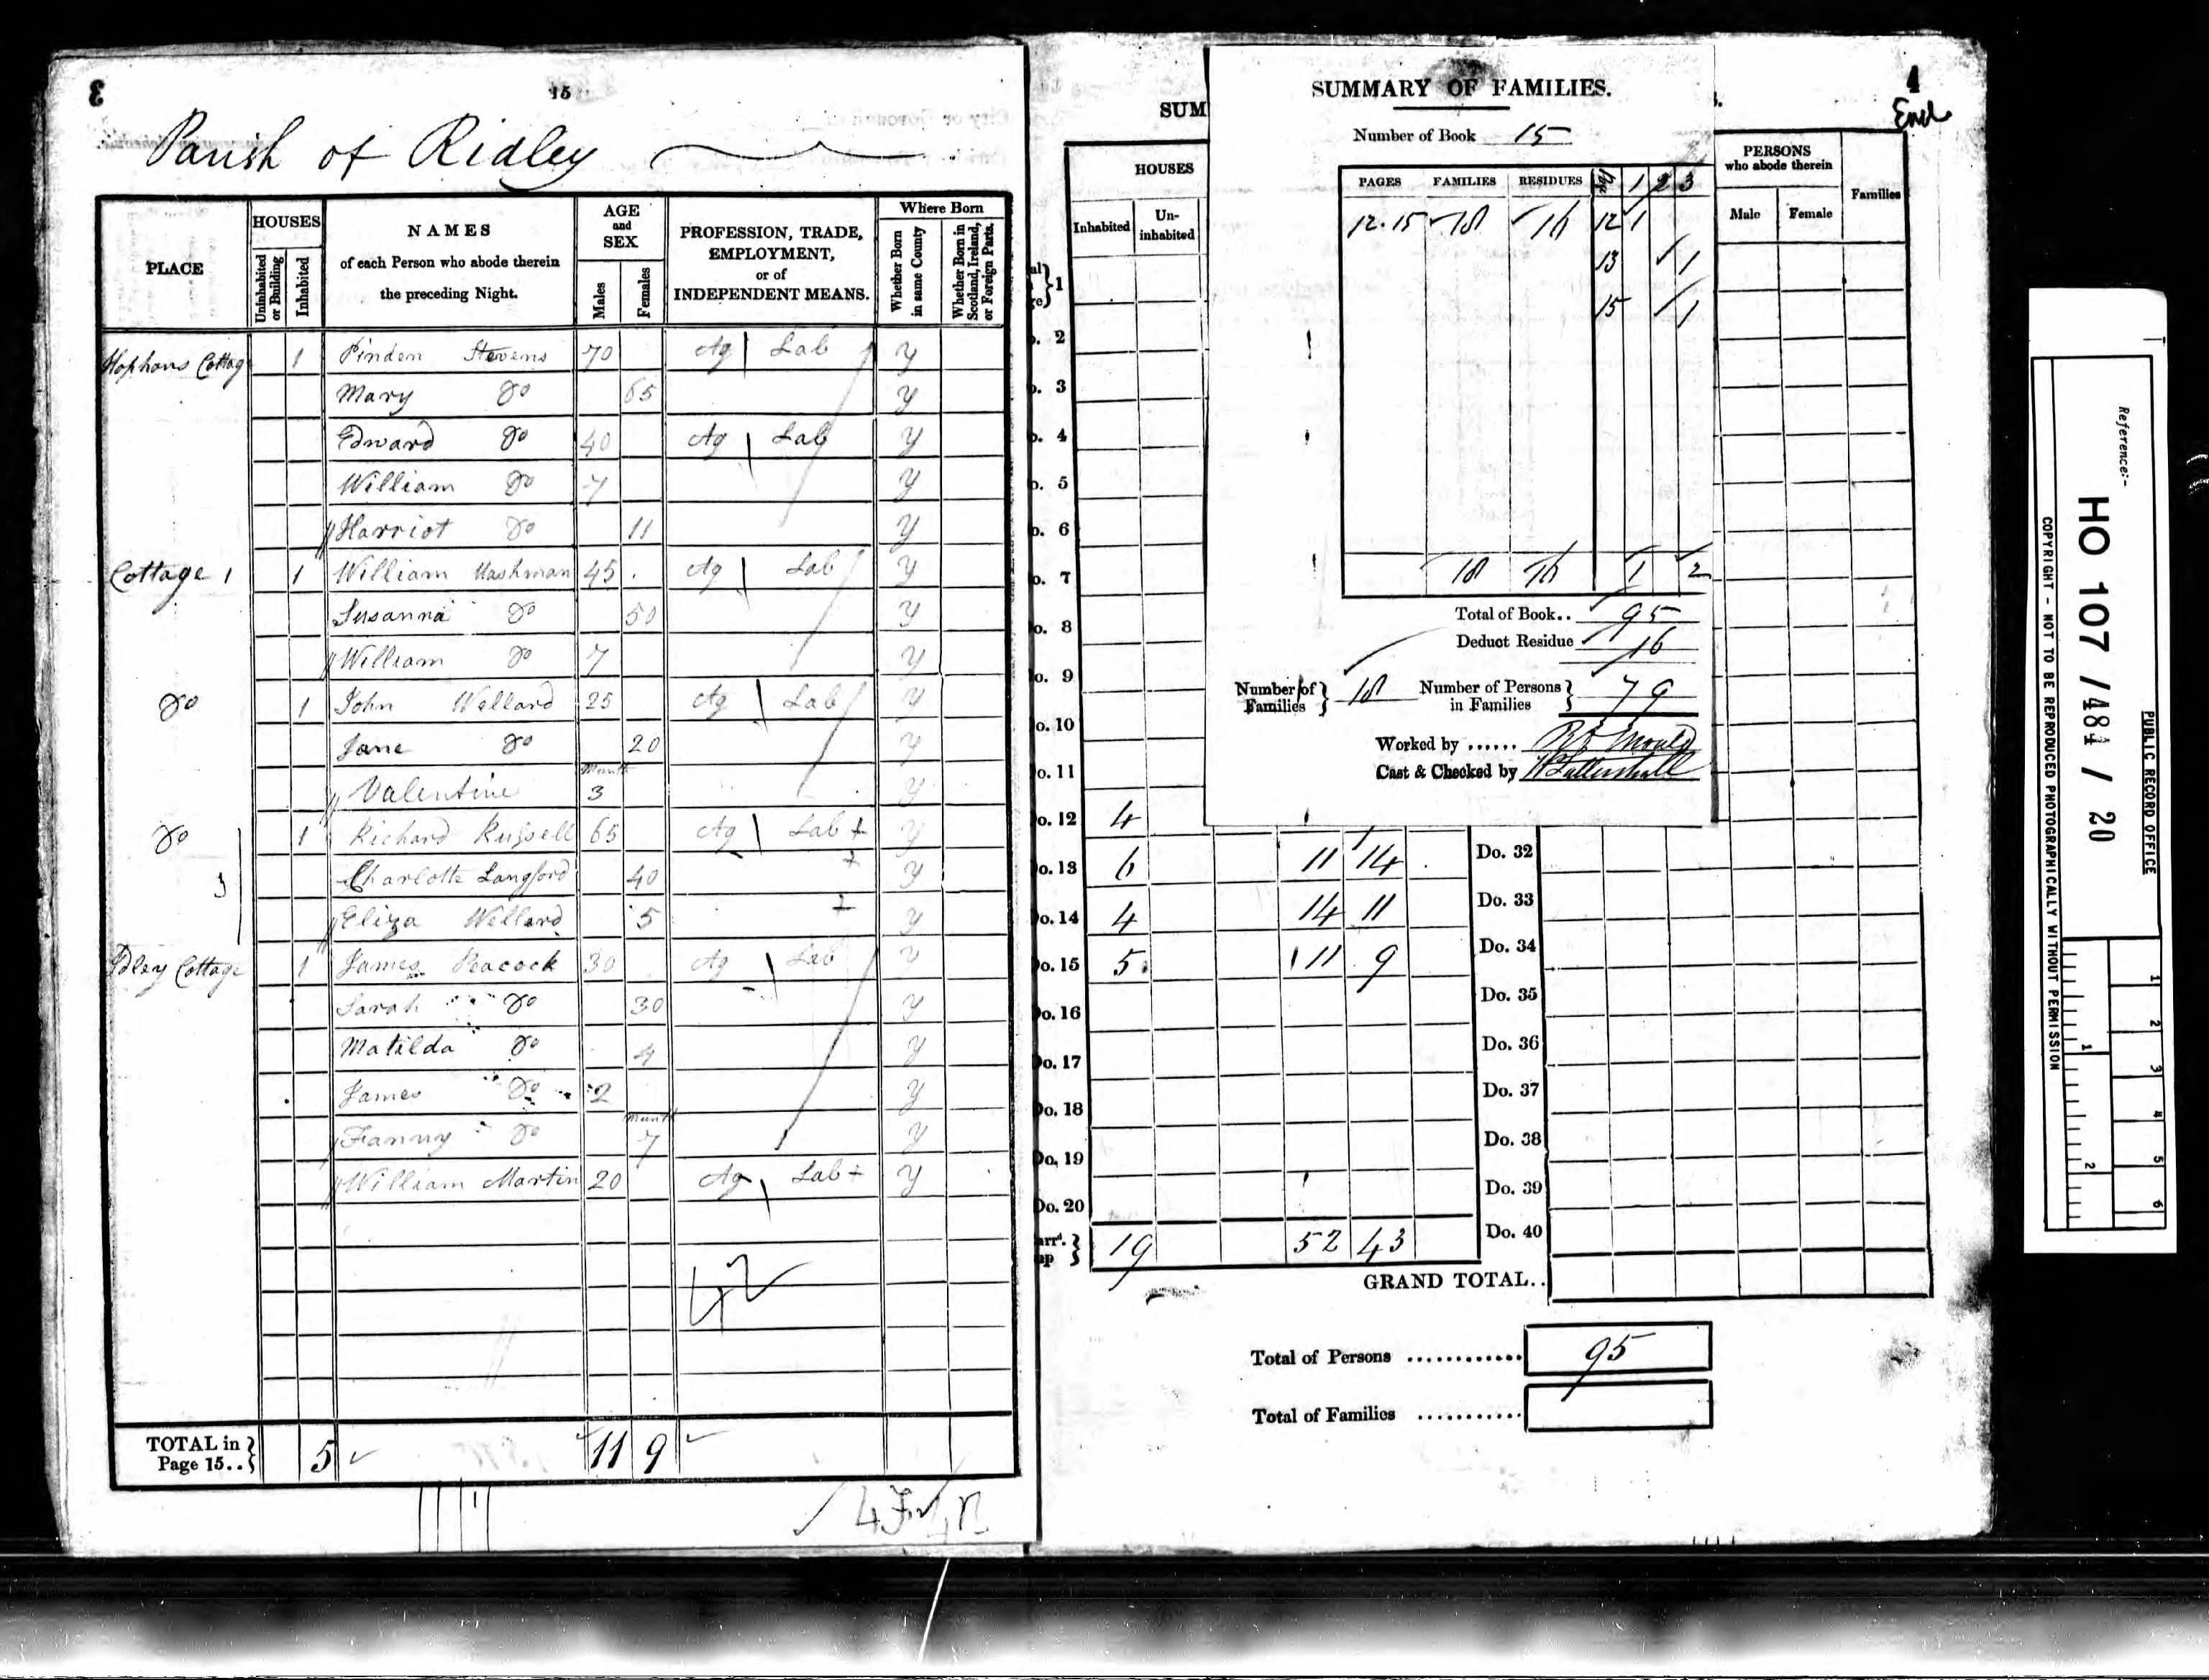 3
15
Parish of Ridley
PLACE
HOUSES
Uninhabited or Building
Inhabited
NAMES
of each Person who abode therein
the preceding Night.
AGE
and
SEX
Males
Females
PROFESSION, TRADE,
EMPLOYMENT,
or of
INDEPENDENT MEANS.
Where Born
Whether Born in same County
Whether Born in Scotland, Ireland, or Foreign Parts.
Cottage 1 Pinden Stevens 70 Ag Lab y
Mary Do 65 y
Edward Do 40 Ag Lab y
William Do 7 y
Harriot Do 11 y
Cottage 1 1 William Mashman 45 Ag Lab y
Susanna Do 50 y
William Do 7 y
Do 1 John Wellard 25 Ag Lab y
Jane Do 20 y
Valentine Month 3 y
Do 1 Richard Russell 65 Ag Lab y
Charlotte Langford 40 y
Eliza Wellard 5 y
Cottage 1 James Peacock 30 Ag Lab y
Sarah Do 30 y
Matilda Do 4 y
James Do 2 y
Fanny Do Month 7 y
William Martin 20 Ag Lab y
TOTAL in
Page 15.. 5 11 9
SUM
HOUSES
Inhabited
Un-
inhabited
1
2
3
4
5
6
7
8
9
Do. 10
Do. 11
Do. 12 4
Do. 13 6 11 14
Do. 14 4 14 11
Do. 15 5 11 9
Do. 16
Do. 17
Do. 18
Do. 19
Do. 20
19 52 43
SUMMARY OF FAMILIES.
Number of Book 15
PAGES FAMILIES RESIDUES Page 1 2 3
12.15 18 16 12 1
13 1
15 1
18 16 1 2
Total of Book.. 95
Deduct Residue 16
Number of
Families 18
Number of Persons
in Families 79
Worked by ......
Cast & Checked by
4
End
PERSONS
who abode therein
Male
Female
Families
Do. 32
Do. 33
Do. 34
Do. 35
Do. 36
Do. 37
Do. 38
Do. 39
Do. 40
GRAND TOTAL..
Total of Persons ............ 95
Total of Families ...........
Reference:-
HO 107 / 484 / 20
PUBLIC RECORD OFFICE
COPYRIGHT - NOT TO BE REPRODUCED PHOTOGRAPHICALLY WITHOUT PERMISSION
1
2
3
4
5
6
1
2